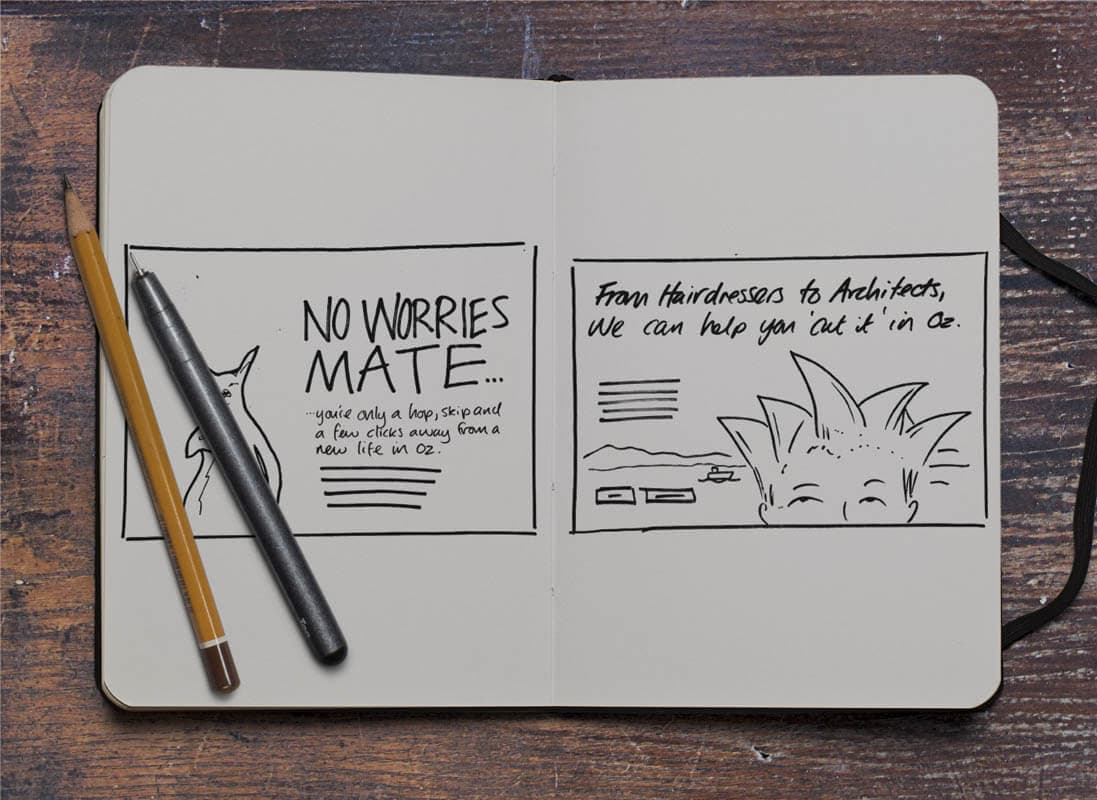 NO WORRIES
MATE...
...you're only a hop, skip and
a few clicks away from a
new life in Oz.
From Hairdressers to Architects,
We can help you 'cut it' in Oz.